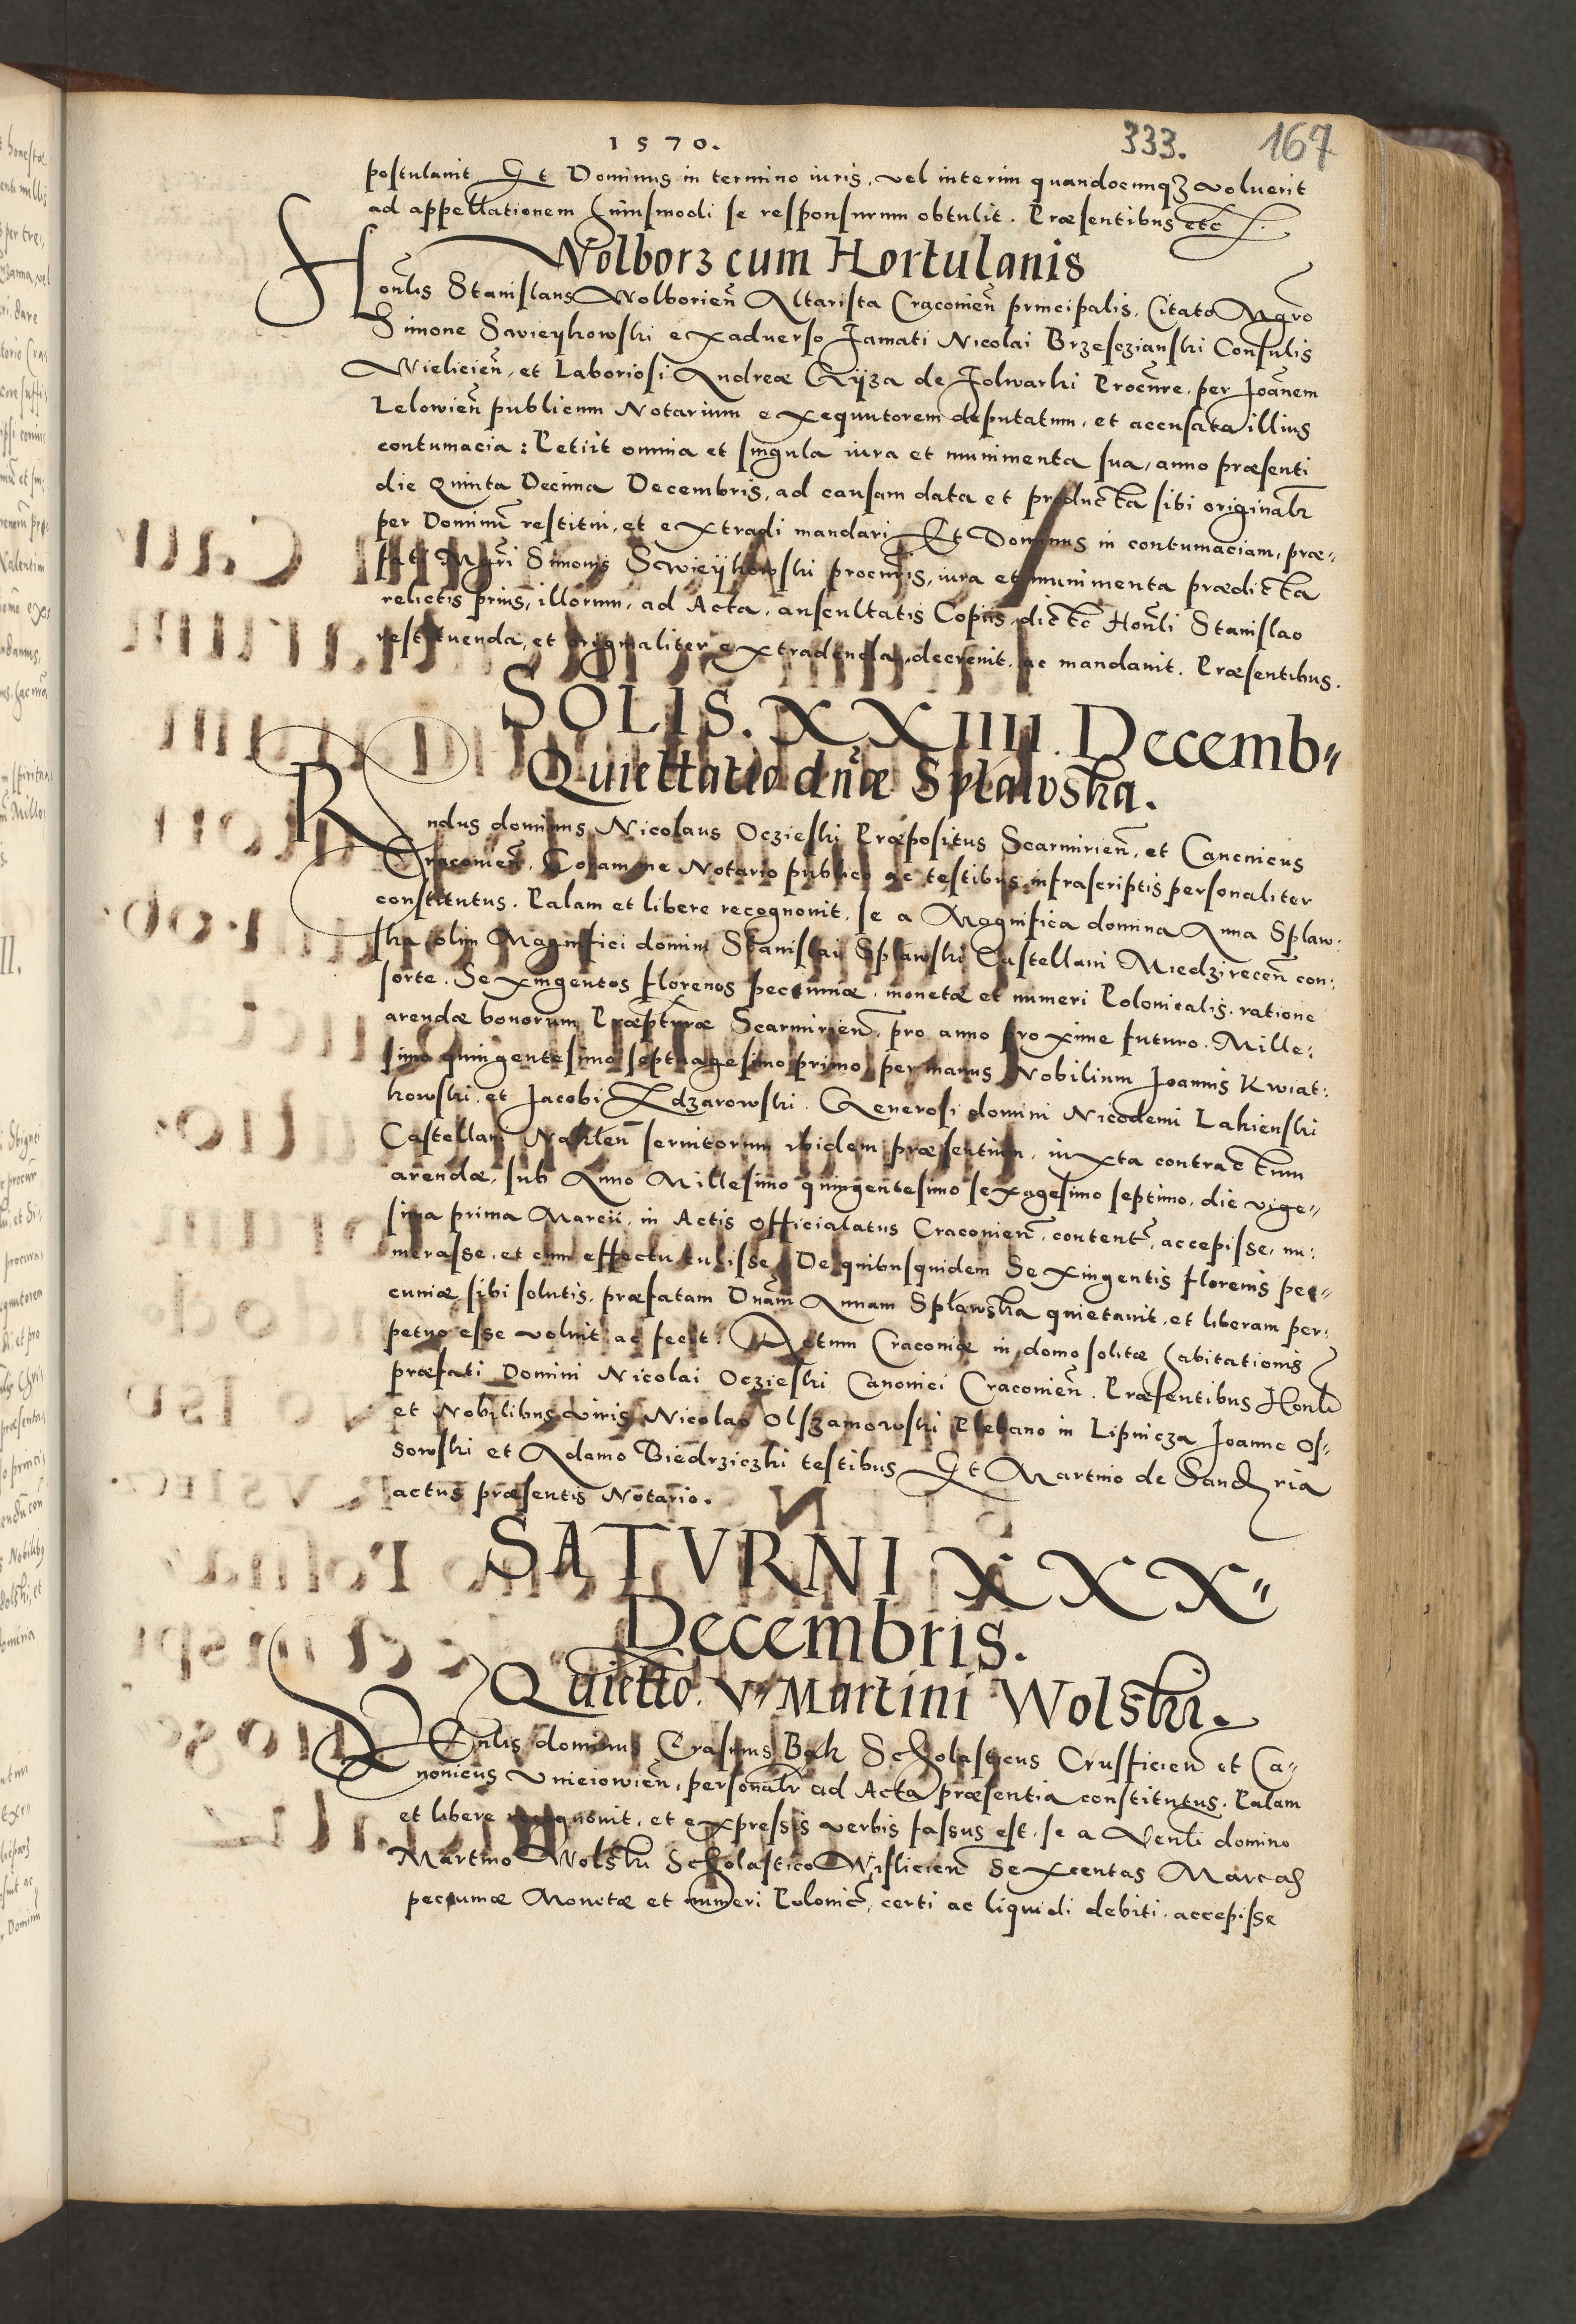 1570.
333. 167
postulauit. Et Dominus in termino iuris, vel interim quandocunqȝ voluerit
ad appellationem huiusmodi se responsurum obtulit. Præsentibus etc
Wolborz cum Hortulanis
Honlis Stanislaus Wolborien̄ Altarista Cracouien̄ principalis, Citato Mgro
Simone Swieykowski exaduerso Famati Nicolai Brzescziański Consulis
Wielicien̄, et Laboriosi Andreæ Ryza de Folwarki Procure, per Joānem
Lelowien̄ publicum Notarium exequutorem deputatum, et accusata illius
contumacia: Petiit omnia et singula iura et munimenta sua, anno præsenti
die Quinta Decima Decembris, ad causam data et producta sibi originalr
per Dominū restitui, et extradi mandari. Et Dominus in contumaciam, præ-
fati Mgri Simonis Swieykowski procuris, iura et munimenta prædicta
relictis prius, illorum, ad Acta, auscultatis Copiis, dicto Honli Stanislao
restituenda, et originaliter extradenda, decreuit, ac mandauit. Præsentibus.
SOLIS. XXIIII. Decemb"
Quiettatio dnæ Spławska.
Rndus dominus Nicolaus Oczieski Præpositus Scarmirien̄, et Canonicus
Cracouien̄, Coram me Notario publico ac testibus infrascriptis personaliter
constitutus. Palam et libere recognouit, se a Magnifica domina Anna Spław:
ska, olim Magnifici domini Stanislai Spławski Castellani Miedzirecen̄ con:
sorte. Sexingentos florenos peccuniæ, monetæ et numeri Polonicalis, ratione
arendæ bonorum Præpturæ Scarmirien̄, pro anno proxime futuro. Mille:
simo quingentesimo septuagesimo primo, per manus Nobilium Joannis Kwiat:
kowski, et Jacobi Zdzarowski. Generosi domini Nicodemi Lakienski
Castellani Naklen̄ seruitorum ibidem præsentium, iuxta contractum
arendæ, sub Anno Millesimo quingentesimo sexagesimo septimo, die vige"
sima prima Marcii, in Actis Officialatus Cracouien̄, content̄, accepisse, nu:
merasse, et cum effectu tulisse. De quibusquidem Sexingentis florenis pec"
cuniæ sibi solutis, præfatam Dnām Annam Spławska quietauit, et liberam per:
petuo esse voluit ac fecit. Actum Cracouiæ in domo solitæ habitationis
præfati Domini Nicolai Oczieski Canonici Cracouien̄. Præsentibus Honli
et Nobilibus viris Nicolao Olszamowski Plebano in Lipnicza Joanne Os"
sowski et Adamo Biedrziczki testibus Et Martino de Sandziria
actus præsentis Notario.
SATVRNI XXX"
Decembris.
Quietto. V" Martini Wolski.
Venlis dominus Erasmus Bak Scholasticus Crusficien̄ et Ca"
nonicus Vnieiowien̄, personalr ad Acta præsentia constitutus. Palam
et libere recognouit, et expressis verbis fassus est, se a Venli domino
Martino Wolski Scholastico Wislicien̄ Sexcentas Marcas
peccuniæ Monetæ et numeri Polonic̄, certi ac liquidi debiti, accepisse